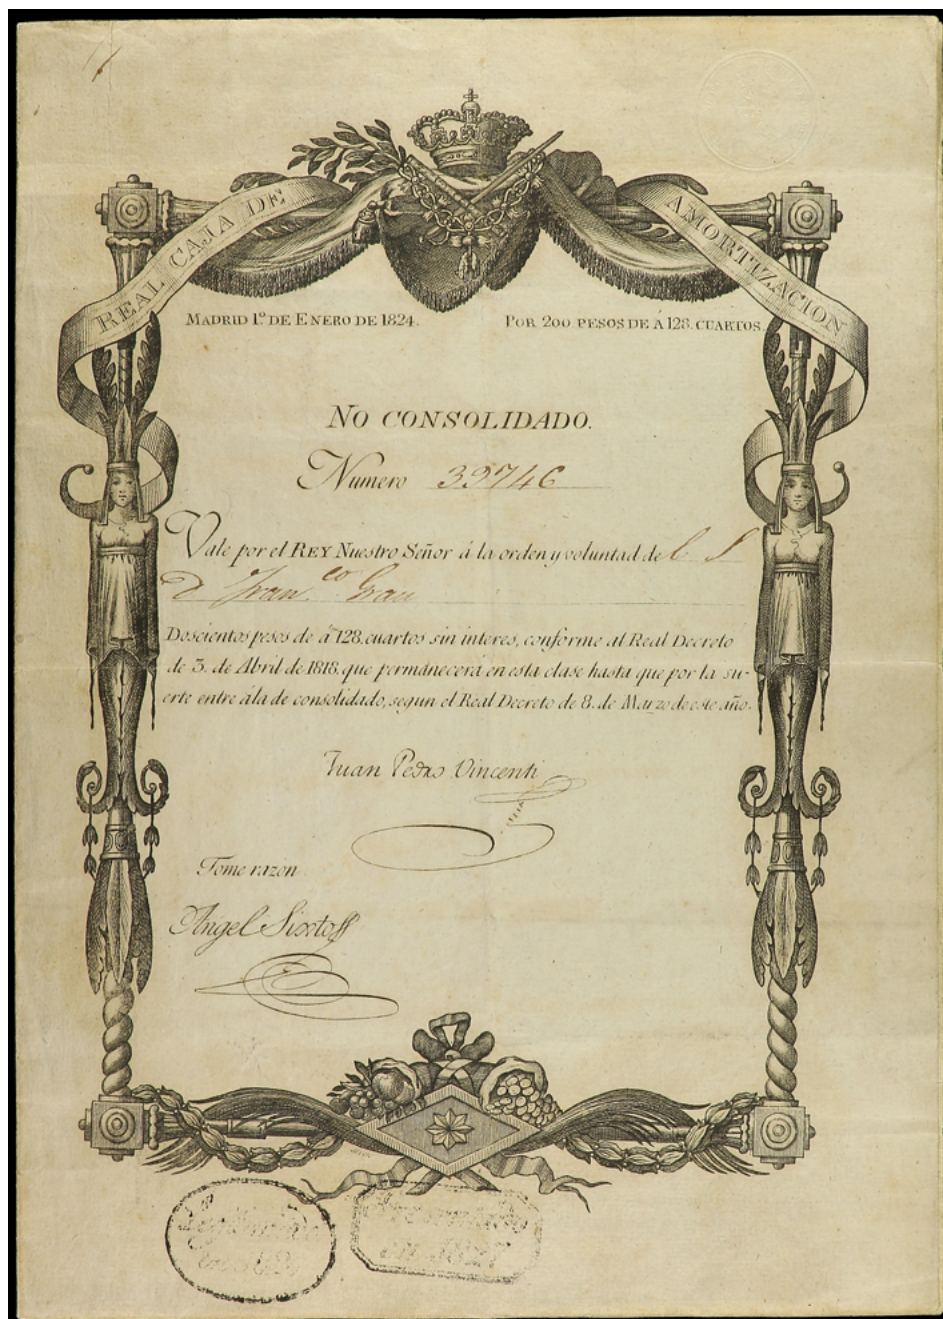 REAL CAJA DE AMORTIZACION
MADRID 1.º DE ENERO DE 1824. POR 200 PESOS DE Á 128. CUARTOS.
NO CONSOLIDADO.
Numero 39746
Vale por el REY Nuestro Señor á la orden y voluntad del S
D Fran.co Grau
Doscientos pesos de á 128. cuartos sin interes, conforme al Real Decreto
de 3. de Abril de 1818. que permanecerá en esta clase hasta que por la su-
erte entre á la de consolidado, segun el Real Decreto de 8. de Marzo de este año.
Juan Pedro Vincenti
Tome razon
Angel Sixto